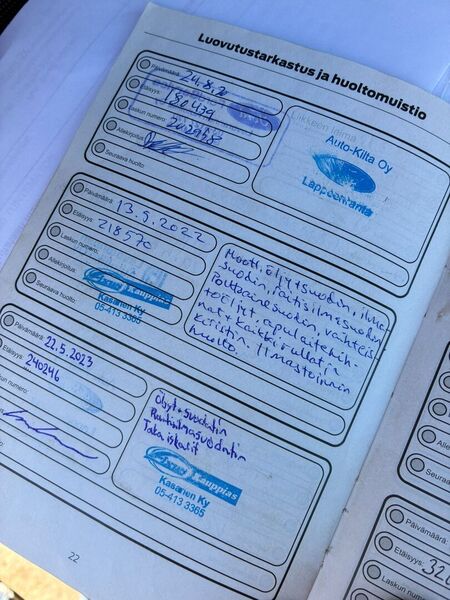 Luovutustarkastus ja huoltomuistio
Päivämäärä: 24.8.2
Etäisyys: 180439
Laskun numero: 202958
Allekirjoitus:
Seuraava huolto:
Liikkeen leima
Auto-Kilta Oy
Lappeenranta
Päivämäärä: 13.5.2022
Etäisyys: 218570
Laskun numero:
Allekirjoitus:
Seuraava huolto:
Kauppias
Kasanen Ky
05-413 3365
Moott. öljyt+suodin, ilman
suodin, raitisilmasuodin
Polttoainesuodin, vaihteis-
töljyt, apulaitehih-
nat+kaikki rullat ja
kiristin. Ilmastoinnin
huolto.
Päivämäärä: 22.5.2023
Etäisyys: 240246
Laskun numero:
Öljyt+suodatin
Raitisilmasuodatin
Taka iskarit
Kauppias
Kasanen Ky
05-413 3365
22
Seuraa
Päivämäärä:
Etäisyys: 320
Laskun numero
Allekirjoitus